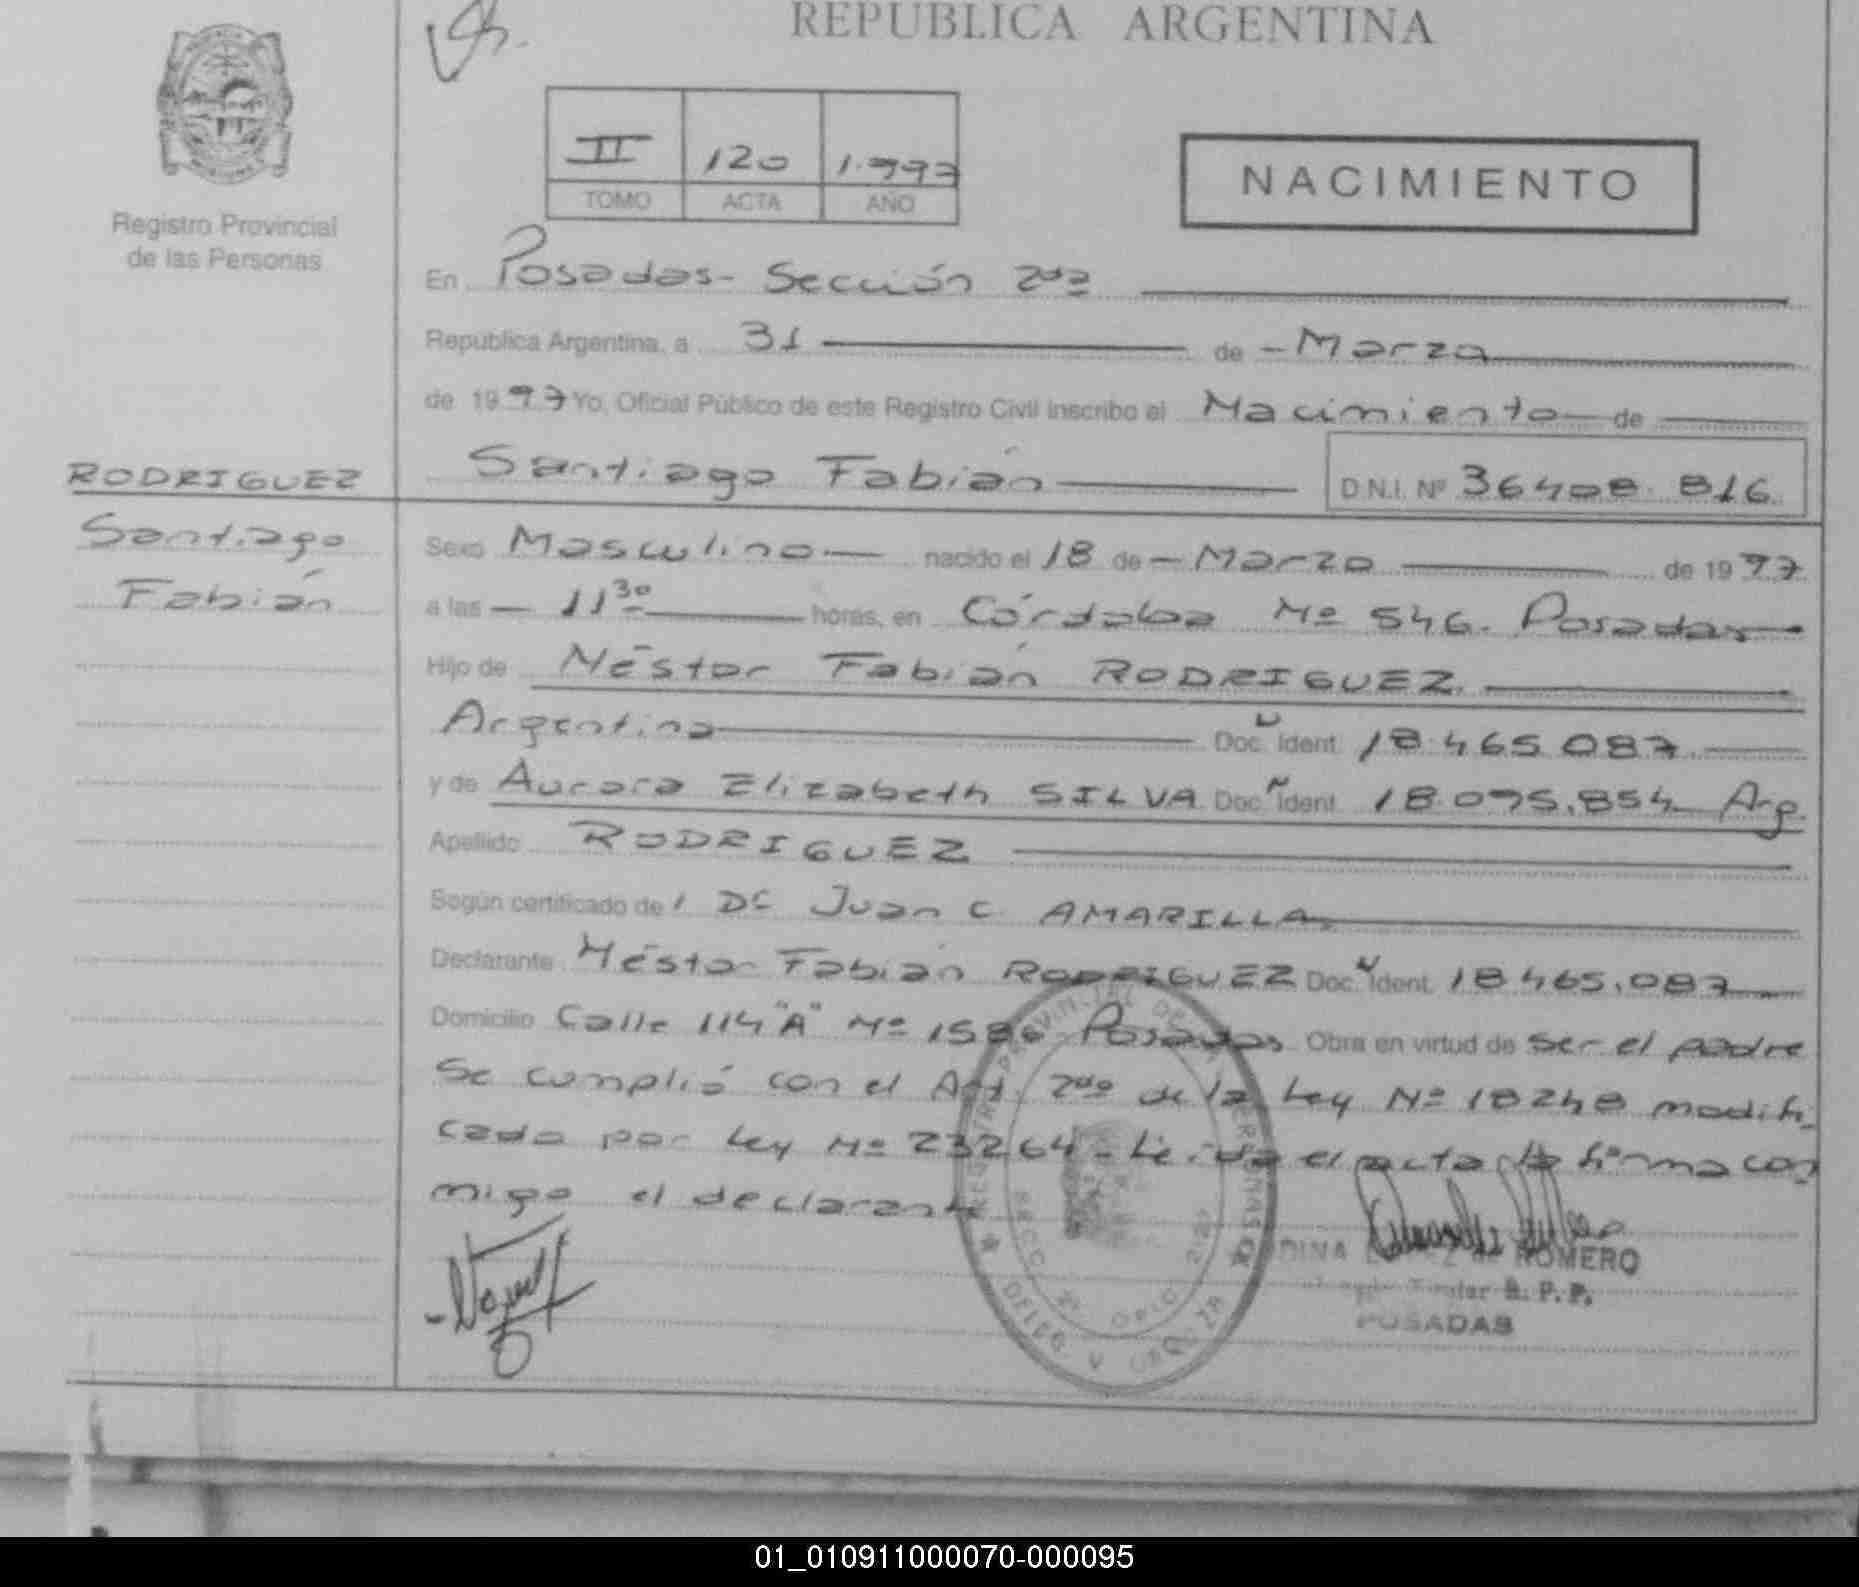 REPUBLICA ARGENTINA
II 120 1.997
TOMO ACTA AÑO
NACIMIENTO
Registro Provincial
de las Personas
En Posadas - Sección 2da
Republica Argentina, a 31 de - Marzo
de 1997 Yo, Oficial Público de este Registro Civil inscribo el Nacimiento de
RODRIGUEZ
Santiago
Fabián
Santiago Fabián D.N.I. Nº 36408.816
Sexo Masculino nacido el 18 de - Marzo de 1997
a las - 11 30 horas, en Córdoba Nº 546. Posadas
Hijo de Néstor Fabián RODRIGUEZ
Argentina Doc. Ident. 18.465.087
y de Aurora Elizabeth SILVA Doc. Ident. 18.095.854 Arg.
Apellido RODRIGUEZ
Según certificado de / Dr Juan C. AMARILLA.
Declarante Néstor Fabián RODRIGUEZ Doc. Ident. 18465.087
Domicilio Calle 114 "A" Nº 1586 Posadas Obra en virtud de ser el padre
Se cumplió con el Art. 2do de la Ley Nº 18248 modifi
cado por Ley Nº 23264 - Leída el acta la firma con
migo el declarante
ROMERO
Titular R. P. P.
POSADAS
01_010911000070-000095